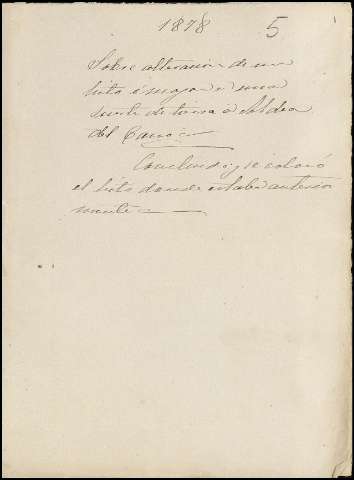 1878 5
Sobre alteracion de un
hito ó mojon en una
suerte de tierra á Aldea
del Cano
Concluido y se colocó
el hito donde estaba anterior
mente